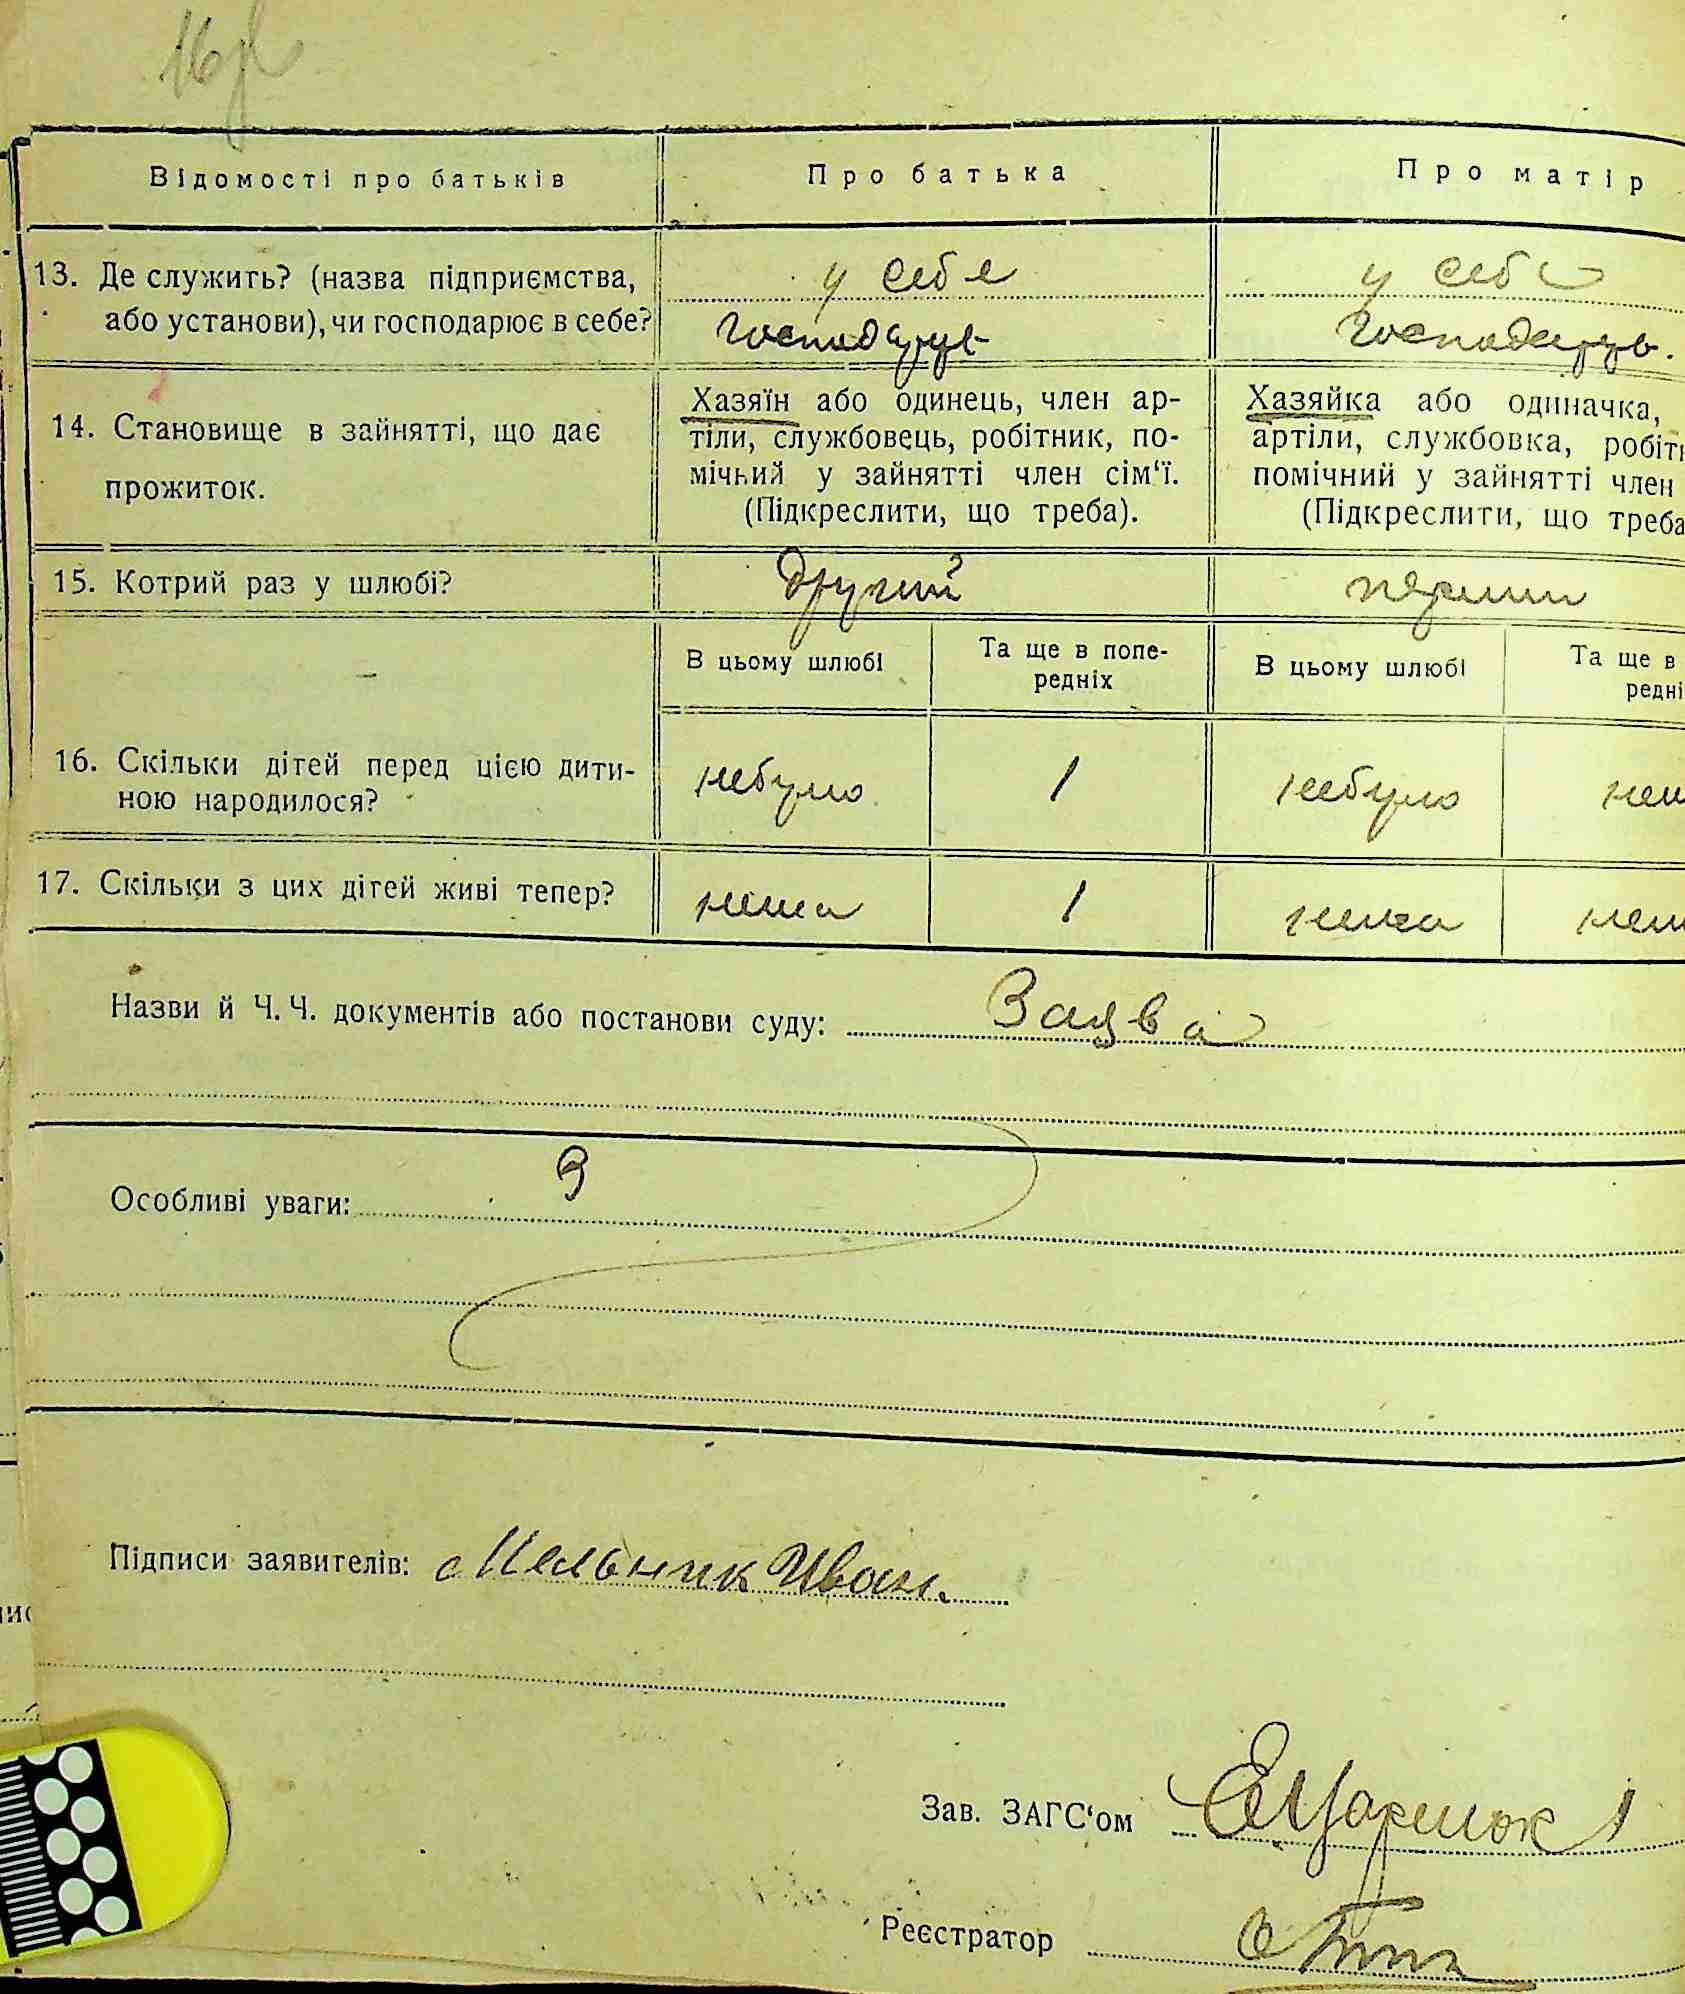 16
Відомості про батьків
Про батька
Про матір
13. Де служить? (назва підприємства,
або установи), чи господарює в себе?
у себе
господарує
у себе
господарує.
14. Становище в зайнятті, що дає
прожиток.
Хазяїн або одинець, член ар-
тіли, службовець, робітник, по-
мічний у зайнятті член сім‘ї.
(Підкреслити, що треба).
Хазяйка або одиначка,
артіли, службовка, робіт
помічний у зайнятті член
(Підкреслити, що треба
15. Котрий раз у шлюбі?
другий
перший
В цьому шлюбі
Та ще в попе-
редніх
В цьому шлюбі
Та ще в
редні
16. Скільки дітей перед цією дити-
ною народилося?
небуло
1
небуло
нем
17. Скільки з цих дітей живі тепер?
нема
1
нема
нем
Назви й Ч. Ч. документів або постанови суду: Заява
Особливі уваги:
Підписи заявителів: Мельник Иван.
Зав. ЗАГС‘ом
Реєстратор